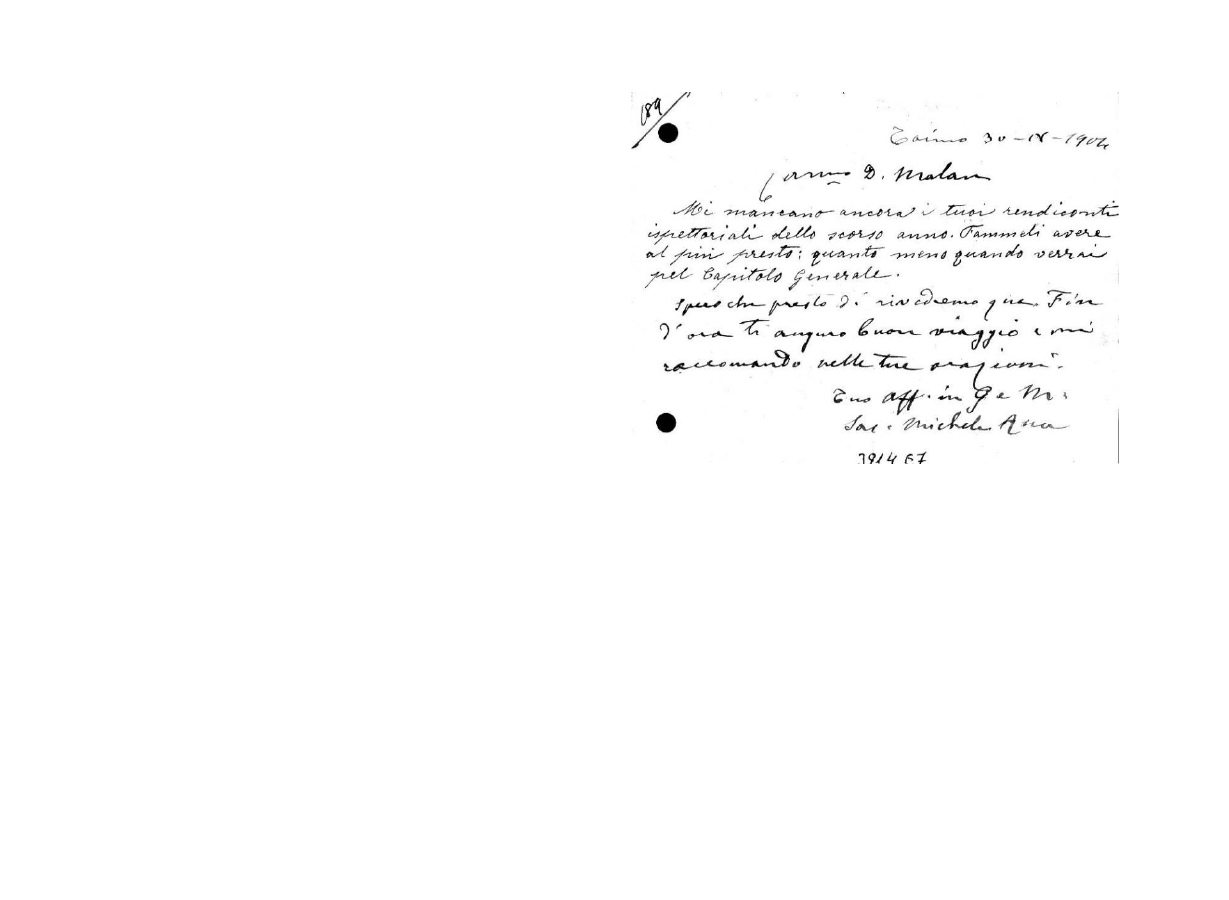 189
Torino 30-IV-1904
Car.mo D. Malan
Mi mancano ancora i tuoi rendiconti
ispettoriali dello scorso anno. Fammeli avere
al più presto: quanto meno quando verrai
pel Capitolo Generale.
Spero che presto di rivedremo qua. Fin
d'ora ti auguro buon viaggio e mi
raccomando nelle tue orazioni.
Tuo aff. in G e M.
Sac. Michele Rua
3914 E7